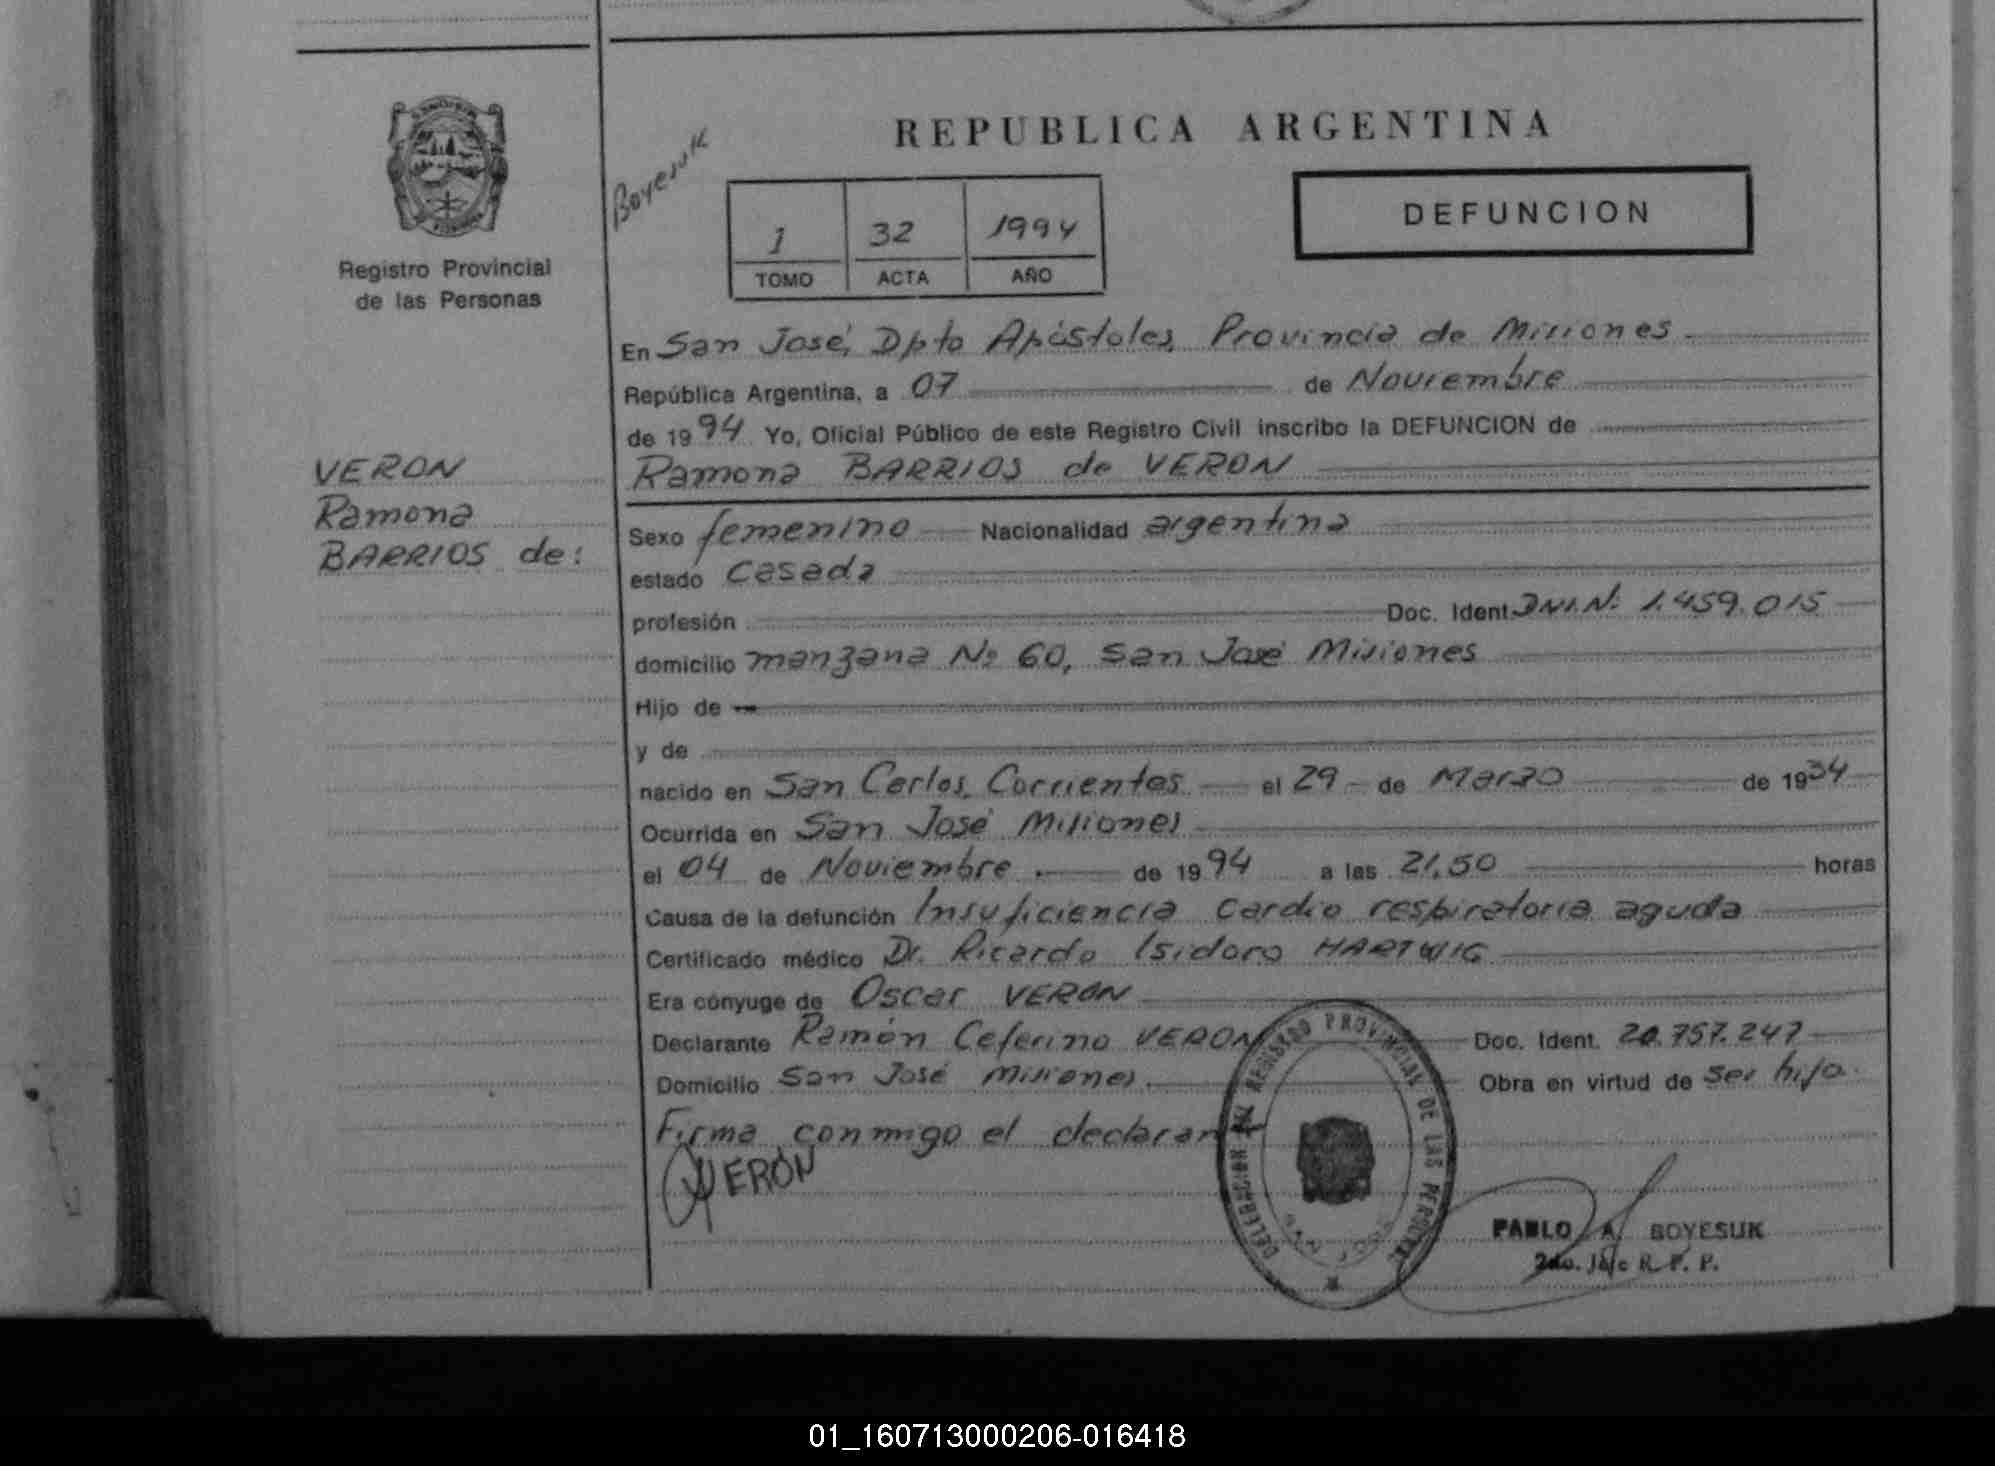 REPUBLICA ARGENTINA
Boyesuk
DEFUNCION
1 32 1994
TOMO ACTA AÑO
Registro Provincial
de las Personas
En San José, Dpto Apóstoles, Provincia de Misiones
República Argentina, a 07 de Noviembre
de 1994 Yo, Oficial Público de este Registro Civil inscribo la DEFUNCION de
Ramona BARRIOS de VERON
VERON
Ramona
BARRIOS de:
Sexo femenino Nacionalidad argentina
estado casada
profesión Doc. Ident. DNI.Nº 1.459.015
domicilio manzana Nº 60, San José Misiones
Hijo de
y de
nacido en San Carlos, Corrientes el 29 de Marzo de 1934
Ocurrida en San José Misiones
el 04 de Noviembre de 1994 a las 21,50 horas
Causa de la defunción Insuficiencia cardio respiratoria aguda
Certificado médico Dr. Ricardo Isidoro HARTWIG
Era cónyuge de Oscar VERON
Declarante Ramón Ceferino VERON Doc. Ident. 20.757.247
Domicilio San José Misiones Obra en virtud de ser hijo.
Firma conmigo el declarante
VERÓN
DELEGACION DEL REGISTRO PROVINCIAL DE LAS PERSONAS
SAN JOSE
PABLO A. BOYESUK
2do. Jefe R. P. P.
01_160713000206-016418